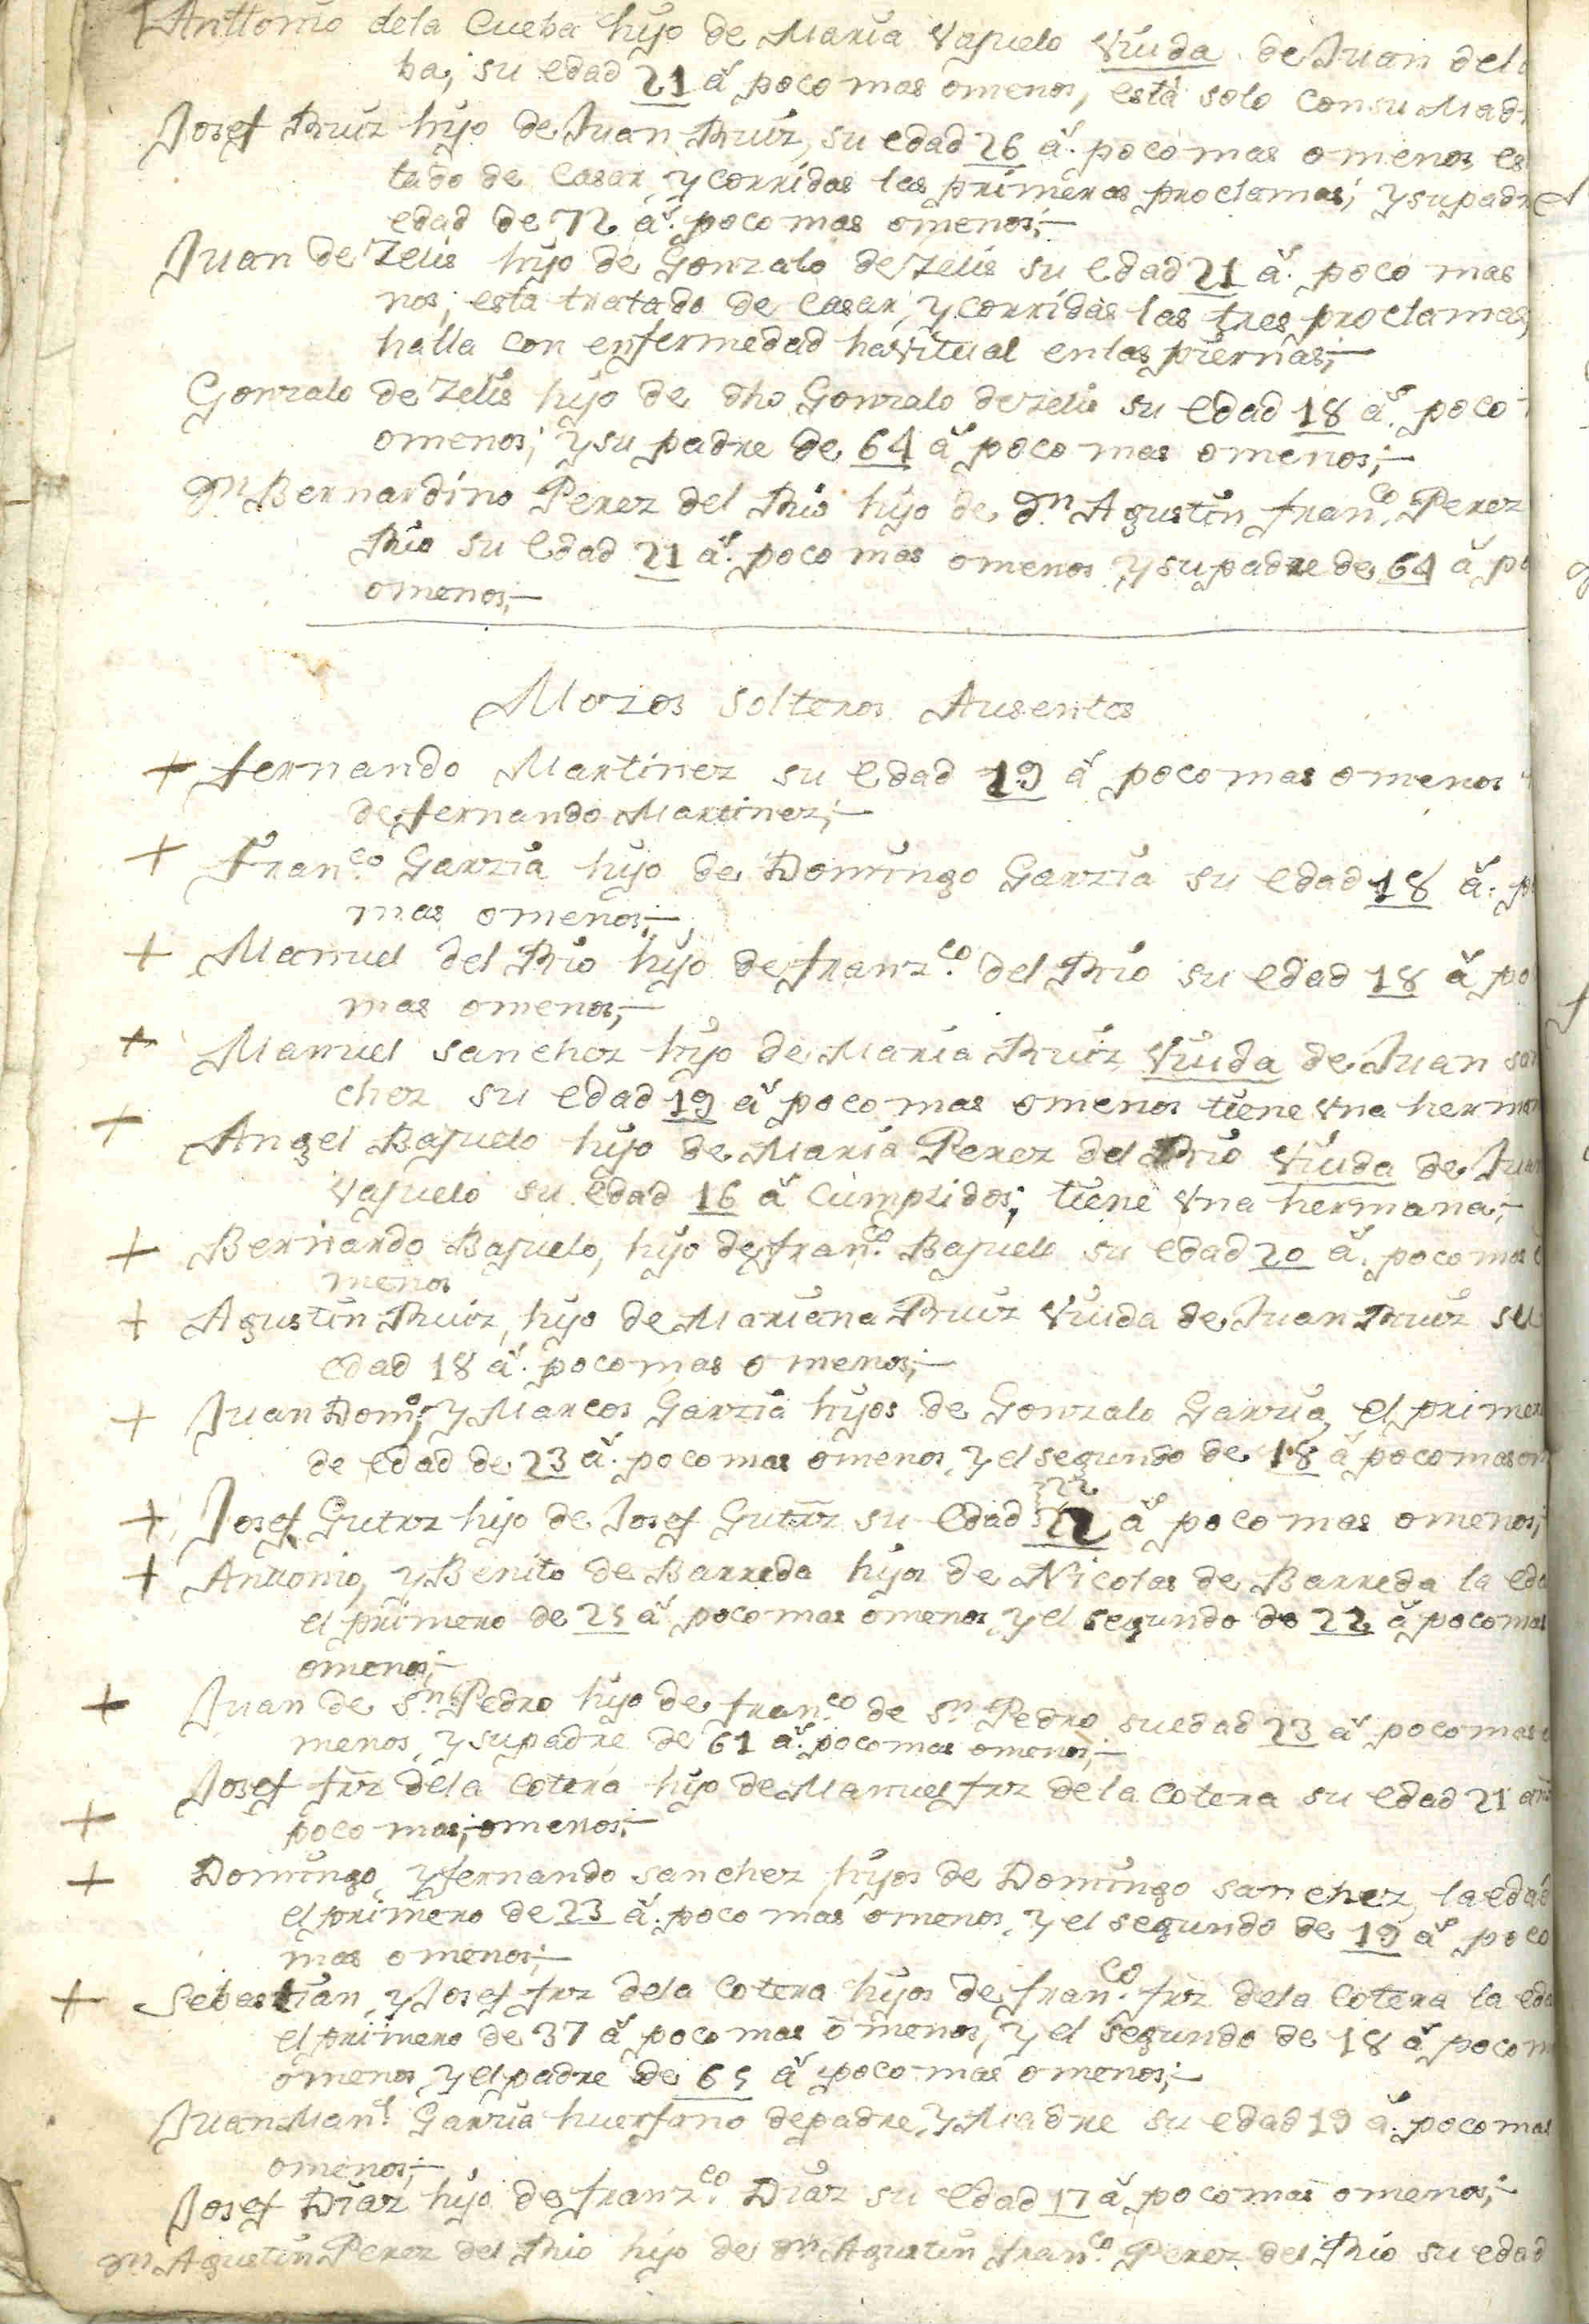 Anttonio dela Cueba hijo de Maria Vajuelo Viuda de Juan del
ba, su edad 21 a.s poco mas omenos, està solo consu Mad
Josef Ruiz hijo de Juan Ruiz, su edad 26 a.s poco mas omenos es
tado de Casar, y corridas las primeras proclamas; y su padre
edad de 72 a.s poco mas omenos;-
Juan de Zelis hijo de Gonzalo de Zelis su edad 21 a.s poco mas
nos; esta tratado de Casar, y corridas las tres proclamas,
halla con enfermedad havitual enlas piernas;-
Gonzalo de Zelis hijo de dho Gonzalo de Zelis su edad 18 a.s poco
omenos; y su padre de 64 a.s poco mas omenos;-
Dn Bernardino Perez del Rio hijo de Dn Agustin Fran.co Perez
Rio su edad 21 a.s poco mas omenos y su padre de 64 a.s po
omenos;-
Mozos Solteros Ausentes
+ Fernando Martinez su edad 19 a.s poco mas omenos
de Fernando Martinez;-
+ Fran.co Garzia hijo de Domingo Garzia su edad 18 a.s p
mas omenos;-
+ Manuel del Rio hijo de Franz.co del Rio su edad 18 a.s po
mas omenos;-
+ Manuel Sanchez hijo de Maria Ruiz Viuda de Juan San
chez su edad 19 a.s poco mas omenos tiene vna herman
+ Angel Bajuelo hijo de Maria Perez del Rio Viuda de Juan
Vajuelo su edad 16 a.s Cumplidos; tiene vna hermana;-
+ Bernardo Bajuelo, hijo de Fran.co Bajuelo su edad 20 a.s poco mas o
menos
+ Agustin Ruiz, hijo de Mariana Ruiz Viuda de Juan Ruiz su
edad 18 a.s poco mas omenos;-
+ Juan Dom.o, y Marcos Garzia hijos de Gonzalo Garzia, el primero
de edad de 23 a.s poco mas omenos, y el segundo de 18 a.s poco mas om
+ Josef Gutrz hijo de Josef Gutrz su edad 22 a.s poco mas omenos;
+ Anttonio, y Benito de Barreda hijos de Nicolas de Barreda la eda
el primero de 25 a.s poco mas omenos, y el segundo de 22 a.s poco mas
omenos;-
+ Juan de Sn Pedro hijo de Fran.co de Sn Pedro su edad 23 a.s poco mas o
menos, y su padre de 61 a.s poco mas omenos;-
Josef frz dela Cotera hijo de Manuel frz dela Cotera su edad 21 a
+ poco mas, omenos;-
+ Domingo, y Fernando Sanchez hijos de Domingo Sanchez, la edad
el primero de 23 a.s poco mas omenos, y el segundo de 19 a.s poco
mas omenos;-
+ Sebastian, y Josef frz dela Cotera hijos de Fran.co frz dela Cotera la eda
el primero de 37 a.s poco mas omenos, y el segundo de 18 a.s poco m
omenos, y el padre de 65 a.s poco mas omenos;-
Juan Man.l Garzia huerfano de padre, y Madre su edad 19 a.s poco mas
omenos;-
Josef Diaz hijo de Franz.co Diaz su edad 17 a.s poco mas omenos;-
Dn Agustin Perez del Rio hijo de Dn Agustin Fran.co Perez del Rio su edad